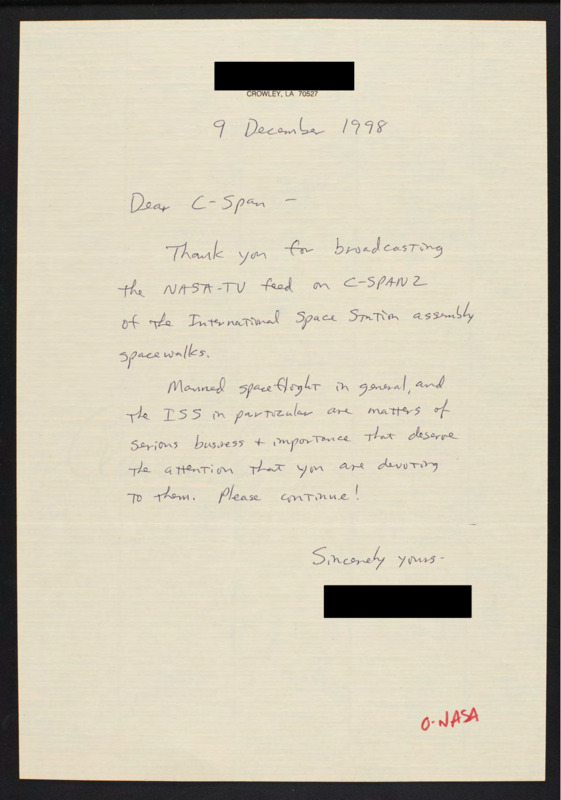 CROWLEY, LA 70527
9 December 1998
Dear C-Span -
Thank you for broadcasting
the NASA-TV feed on C-SPAN2
of the International Space Station assembly
spacewalks.
Manned spaceflight in general, and
the ISS in particular are matters of
serious business + importance that deserve
the attention that you are devoting
to them. Please continue!
Sincerely yours-
O-NASA